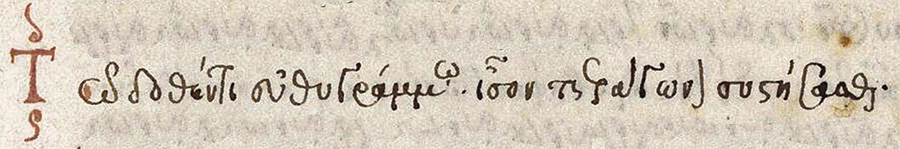 Τῶ δοθέντι εὐθυγράμμω· ἴσον τετράγωνον συστήσασθαι·